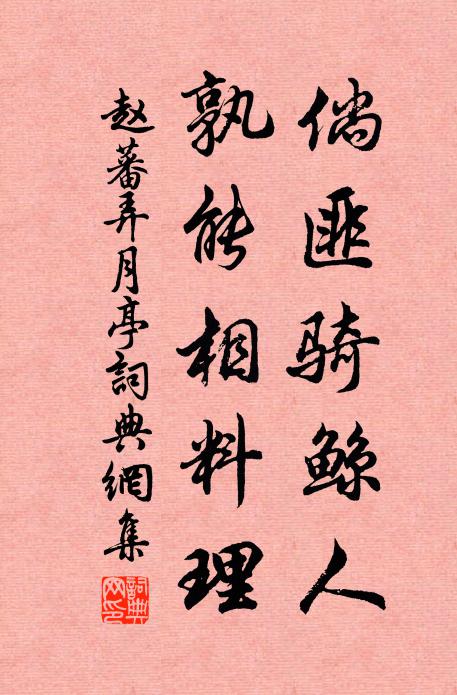 倘匪骑鲸人
孰能相料理
赵蕃弄月亭詞典網集
詞典網印